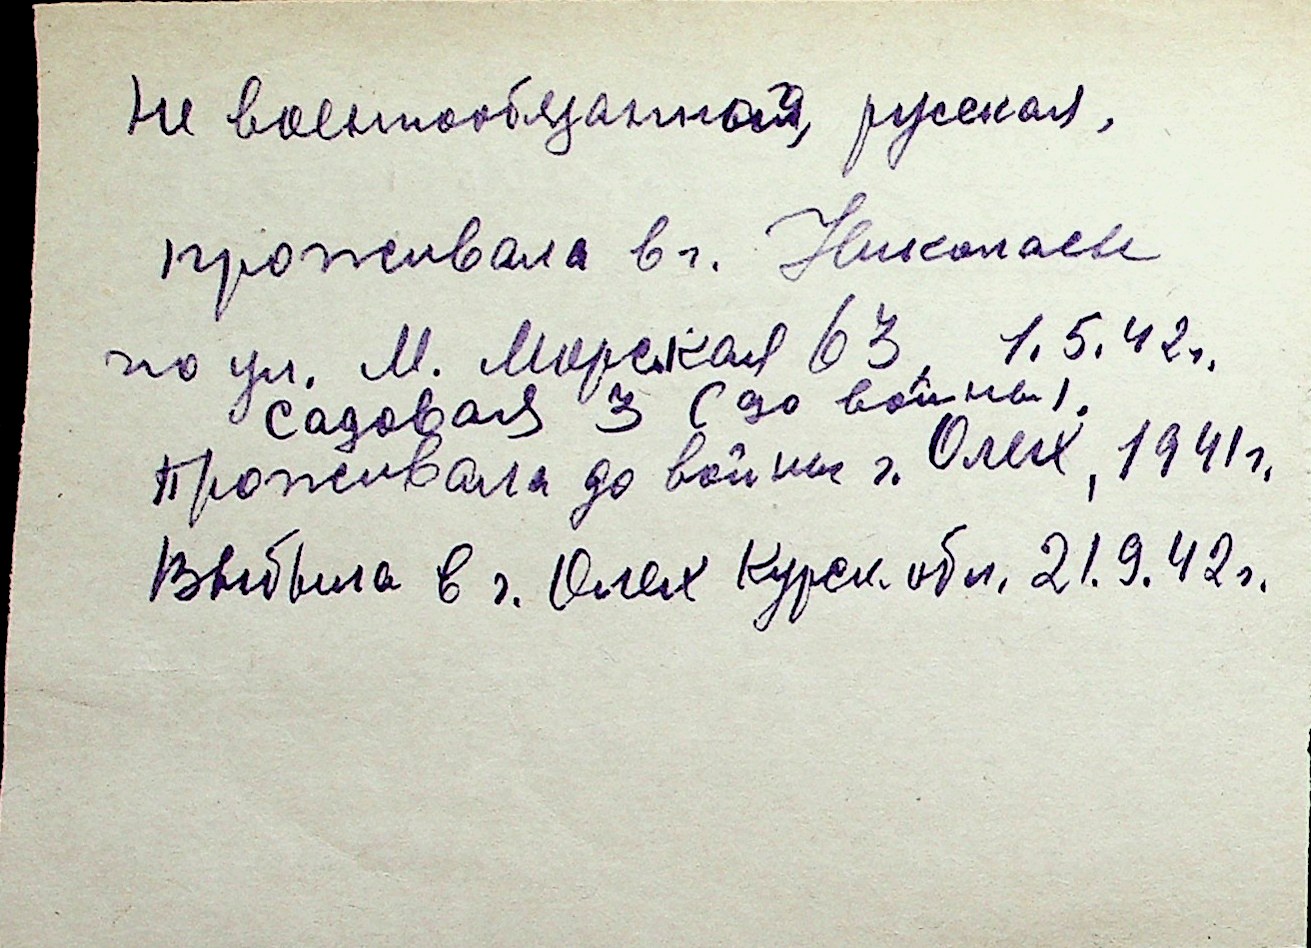 Не военнообязанная, русская,
проживала в г. Николаеве
по ул. М. Морская 63, 1.5.42г.
Садовая 3 (до войны).
Проживала до войны г. Олех, 1941г.
Выбыла в г. Олех Курск. обл. 21.9.42г.